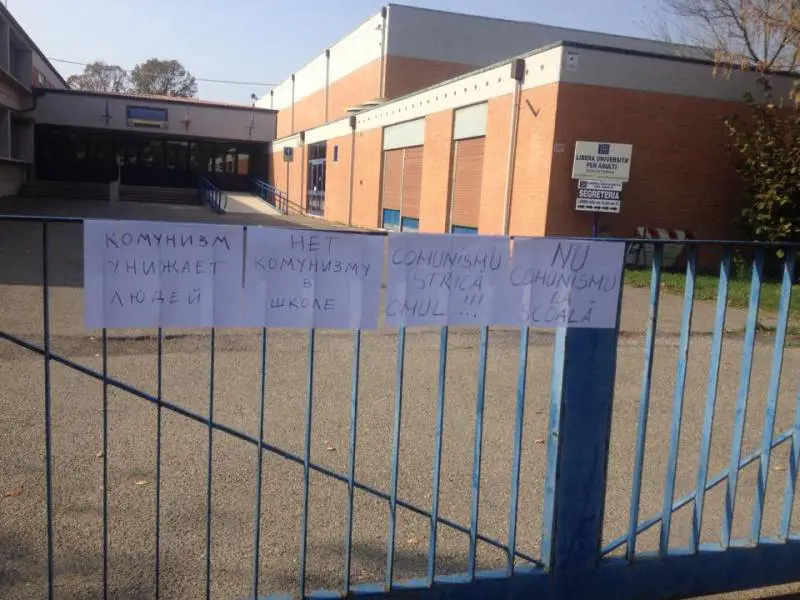 КОМУНИЗМ
УНИЖАЕТ
ЛЮДЕЙ
НЕТ
КОМУНИЗМУ
В
ШКОЛЕ
COMUNISMU
STRICĂ
OMUL !!!
NU
COMUNISMU
LA
SCOALĂ
LIBERA UNIVERSITA'
PER ADULTI
SEGRETERIA